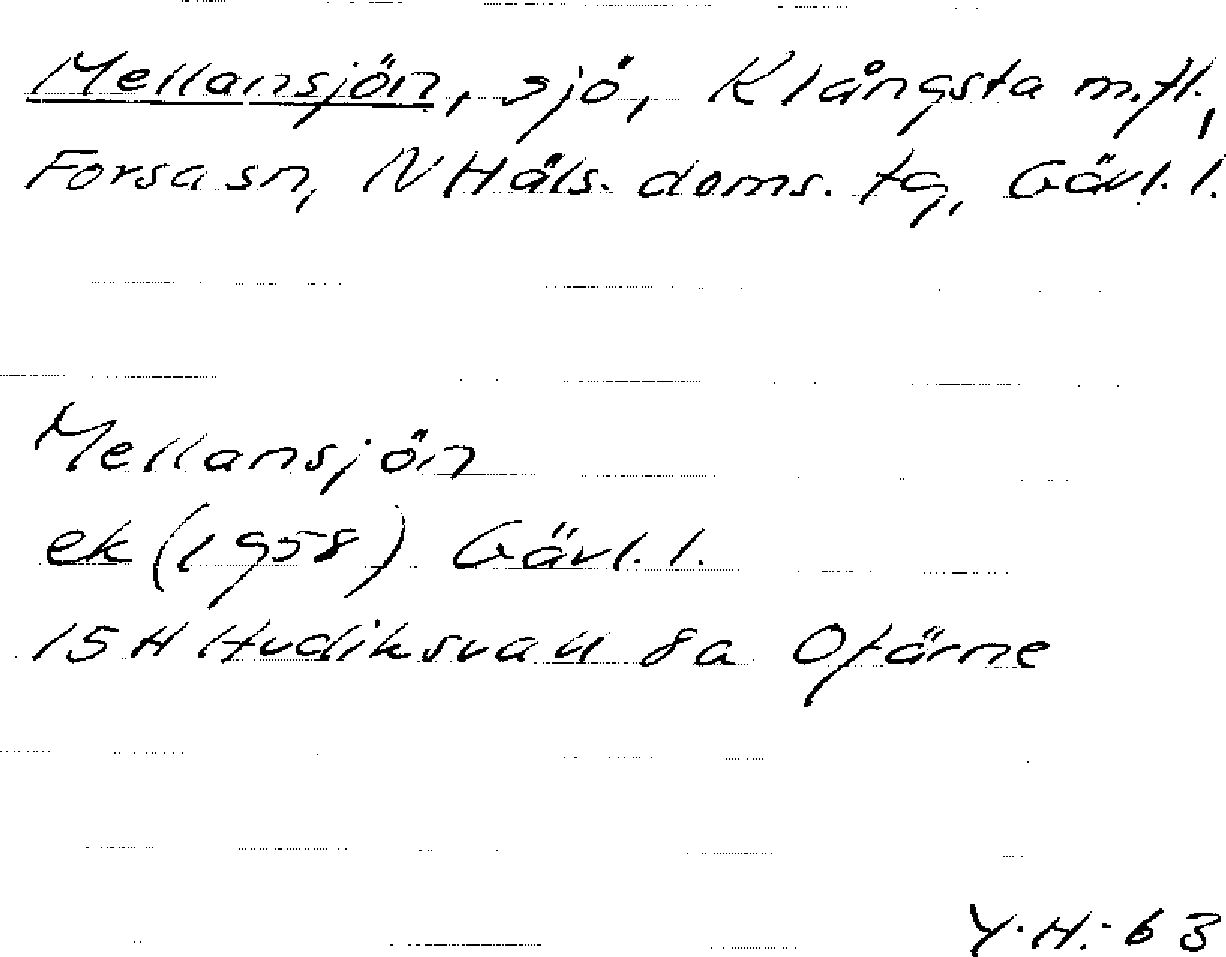 Mellansjön, sjö, Klångsta m.fl.,
Forsa sn, N Häls. doms. tg, Gävl. l.
Mellansjön
ek (1958) Gävl. l.
15 H Hudiksvall 8a Ofärne
Y. H. - 63